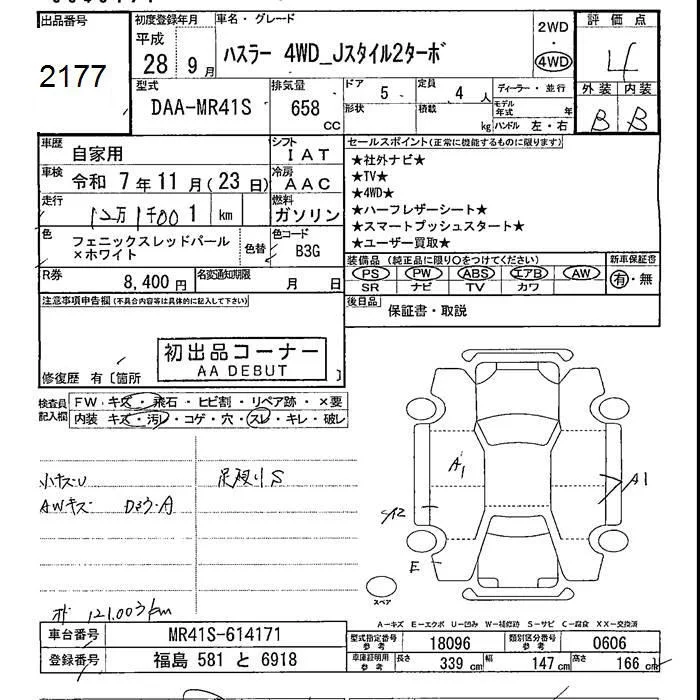 出品番号
2177
初度登録年月
平成
28 9月
車名・グレード
ハスラー 4WD_Jスタイル2ターボ
2WD
・
4WD
評価点
4
外装 内装
B B
型式
DAA-MR41S
排気量
658
CC
ドア 5
形状
定員 4 人
積載 kg
ディーラー・並行
モデル年式 年
ハンドル 左・右
車歴
自家用
シフト
IAT
車検
令和 7年11月(23日)
冷房
AAC
走行
1 km
燃料
ガソリン
色
フェニックスレッドパール
×ホワイト
色替
色コード
B3G
R券
8,400円
名変通知期限
月 日
セールスポイント(正常に機能するものに限り)
★社外ナビ★
★TV★
★4WD★
★ハーフレザーシート★
★スマートプッシュスタート★
★ユーザー買取★
装備品(純正品に限り○をつけてください)
PS PW ABS エアB AW
SR ナビ TV カワ
新車保証書
有・無
後日品
保証書・取説
注意事項申告欄(不具合内容等は具体的に記入して下さい)
初出品コーナー
AA DEBUT
修復歴 有〔箇所 〕
検査員記入欄
FW キズ・飛石・ヒビ割・リペア跡・×要
内装 キズ・汚レ・コゲ・穴・スレ・キレ・破レ
小キズU
AWキズ
S
A1
A1
A2
E
スペア
121,003km
A-キズ E-エクボ U-凹み W-補修跡 S-サビ C-腐食 XX-交換済
車台番号
MR41S-614171
登録番号
福島 581 と 6918
型式指定番号
参考
18096
類別区分番号
参考
0606
車庫証明用
参考
長さ 339 cm
幅 147 cm
高さ 166 cm